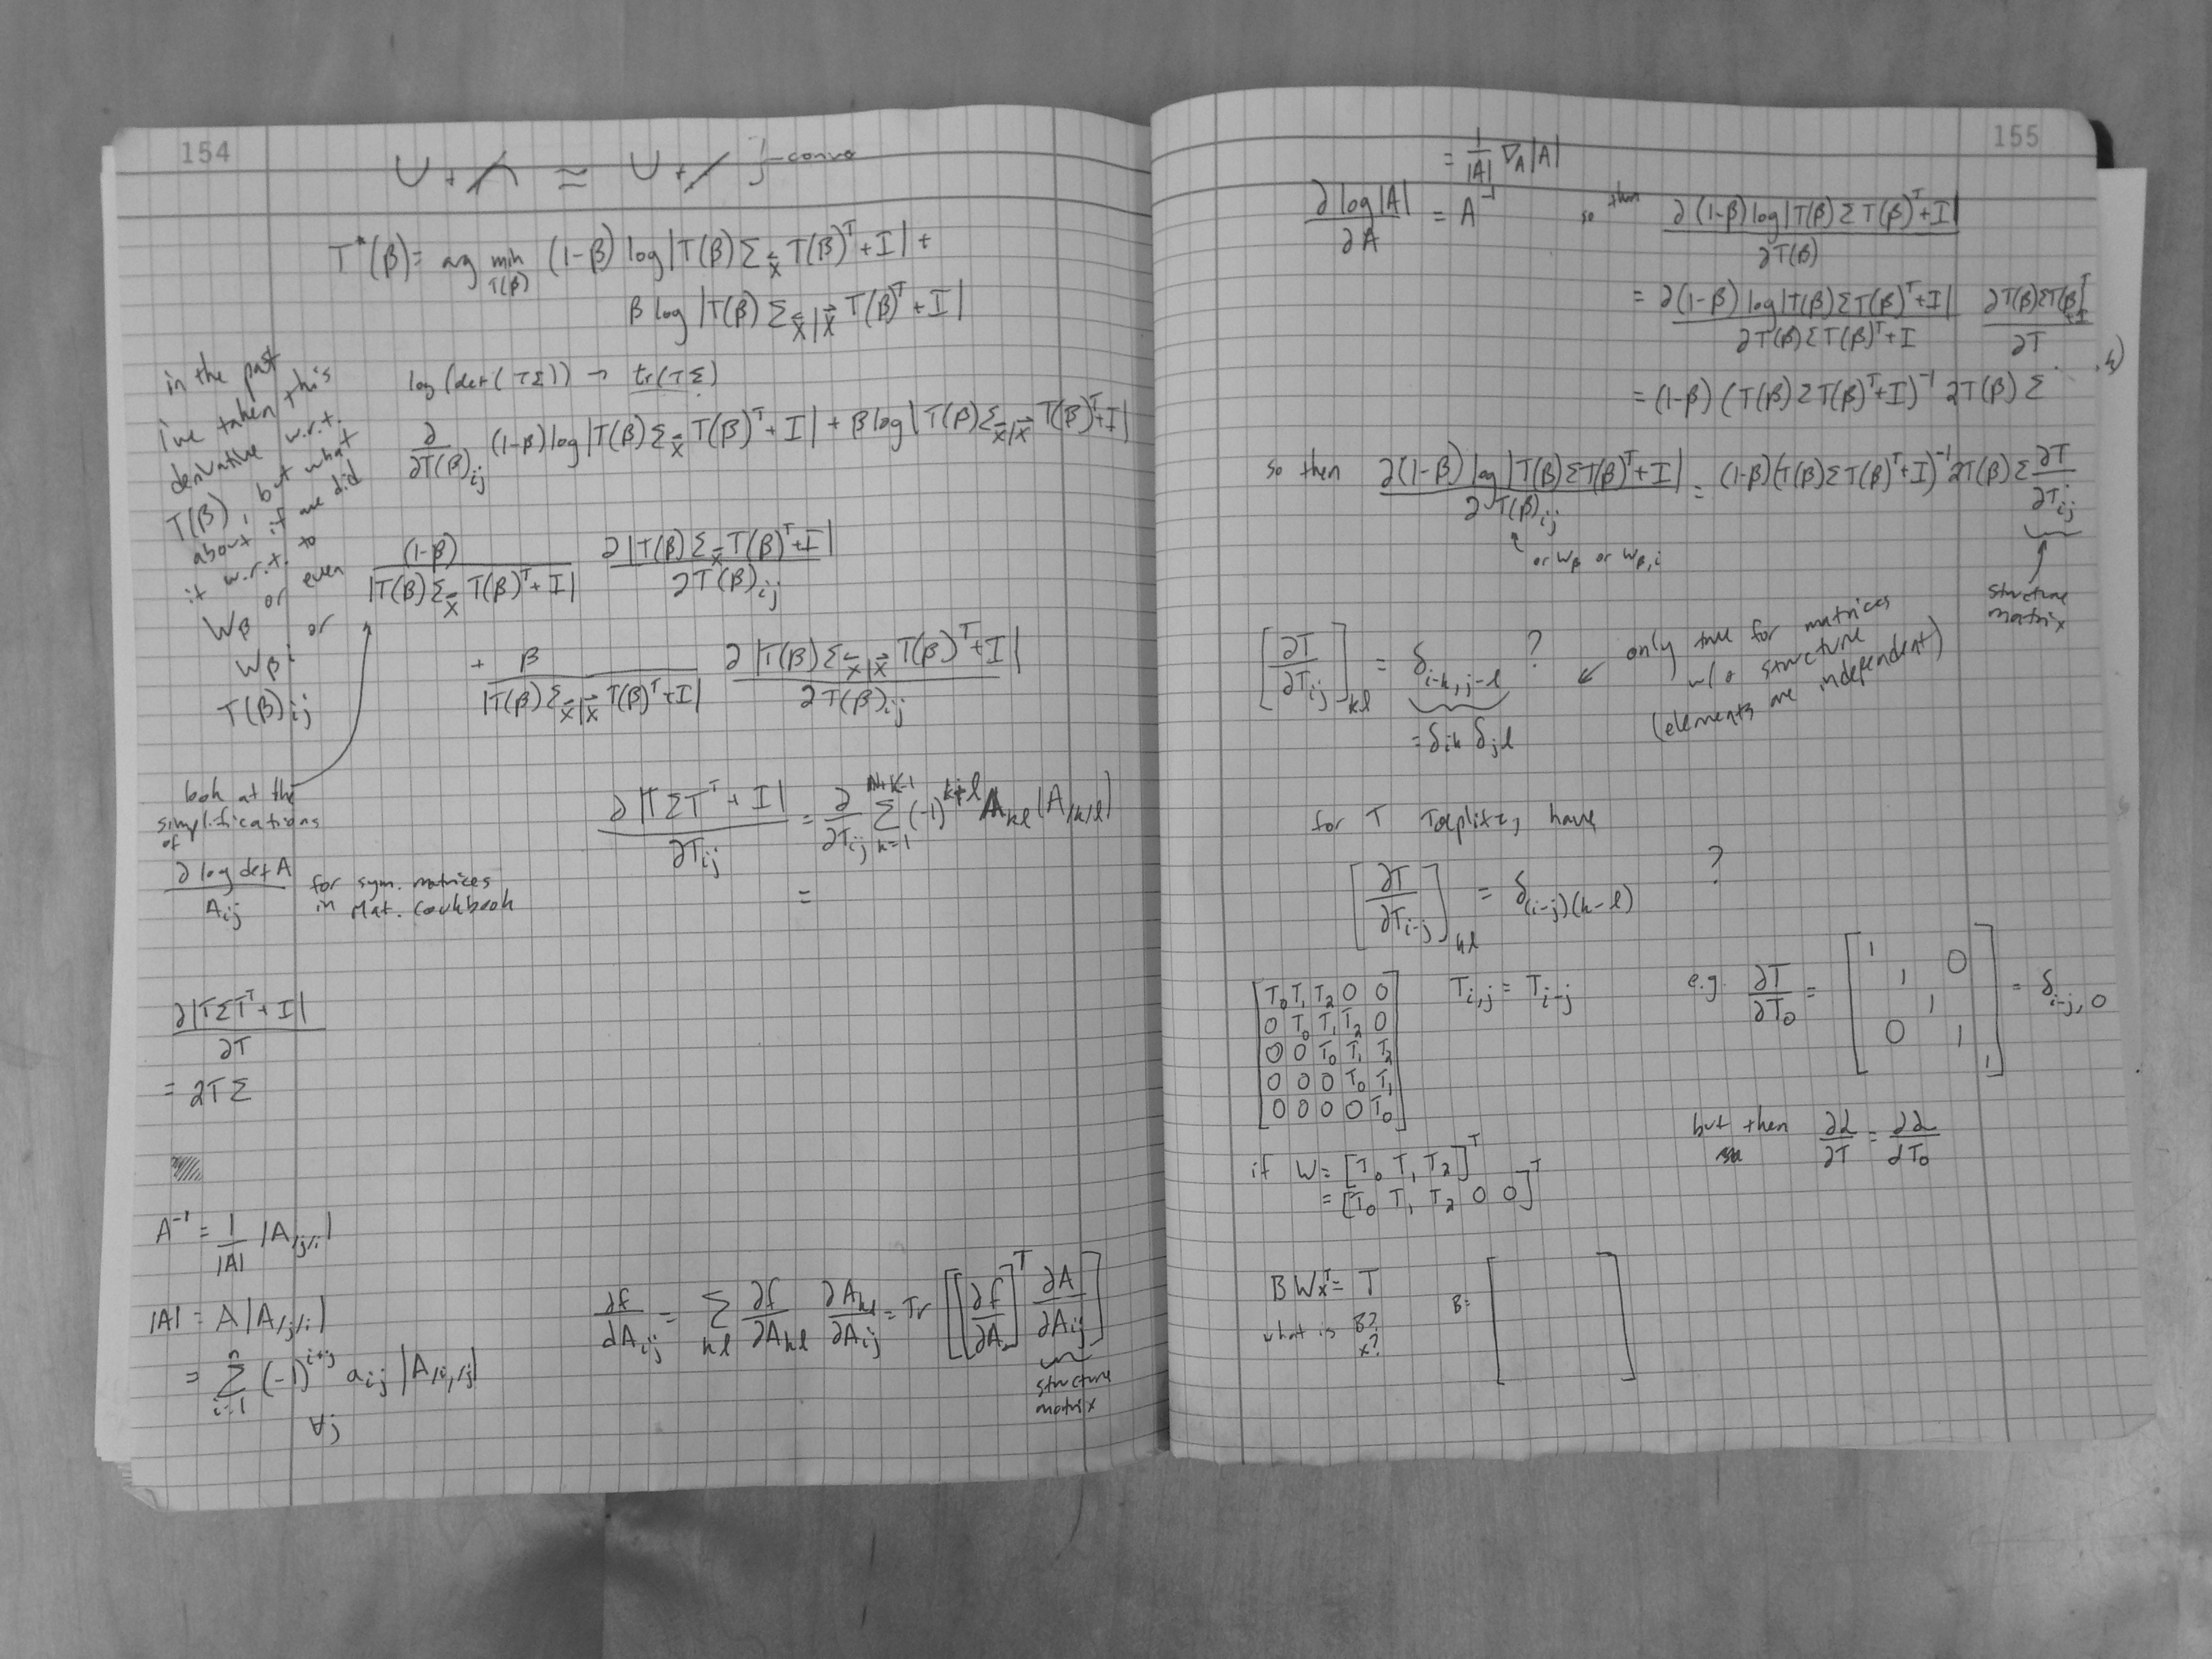 154
∪ + ╱∩ ≈ ∪ + ╱ }
T*(β) = arg min_{T(β)} (1-β) log|T(β) Σ_{x⃖} T(β)^T + I| +
β log |T(β) Σ_{x⃖|x⃗} T(β)^T + I|
in the past
i've taken this
derivative w.r.t.
T(β), but what
about if we did
it w.r.t. to
W_β or even
W_{β i} or
T(β)_{ij}
log(det(TΣ)) → tr(TΣ)
∂/∂T(β)_{ij} (1-β) log|T(β) Σ_{x⃖} T(β)^T + I| + β log|T(β) Σ_{x⃖|x⃗} T(β)^T + I|
(1-β)/|T(β) Σ_{x⃖} T(β)^T + I| ∂|T(β) Σ_{x⃖} T(β)^T + I|/∂T(β)_{ij}
+ β/|T(β) Σ_{x⃖|x⃗} T(β)^T + I| ∂|T(β) Σ_{x⃖|x⃗} T(β)^T + I|/∂T(β)_{ij}
look at the
simplifications
of
∂ log det A / A_{ij} for sym. matrices
in Mat. Cookbook
∂|TΣT^T + I|/∂T_{ij} = ∂/∂T_{ij} Σ_{k=1}^{N+K-1} (-1)^{k+l} A_{kl} (A_{/k/l})
=
∂|TΣT^T + I|/∂T
= 2TΣ
A^{-1} = 1/|A| |A_{/j/i}|
|A| = A |A_{/j/i}|
= Σ_{i=1}^{n} (-1)^{i+j} a_{ij} |A_{/i,/j}|
∀j
∂f/dA_{ij} = Σ_{kl} ∂f/∂A_{kl} ∂A_{kl}/∂A_{ij} = Tr[[∂f/∂A]^T ∂A/∂A_{ij}]
structure
matrix
155
= 1/|A| ∇_A|A|
∂ log|A|/∂A = A^{-1} so then ∂(1-β) log|T(β) Σ T(β)^T + I|/∂T(β)
= ∂(1-β) log|T(β) Σ T(β)^T + I|/∂T(β) Σ T(β)^T + I ∂T(β) Σ T(β)^T + I/∂T
= (1-β) (T(β) Σ T(β)^T + I)^{-1} 2T(β) Σ
so then ∂(1-β) log|T(β) Σ T(β)^T + I|/∂T(β)_{ij} = (1-β)(T(β) Σ T(β)^T + I)^{-1} 2T(β) Σ ∂T/∂T_{ij}
or W_β or W_{β,i}
structure
matrix
[∂T/∂T_{ij}]_{kl} = δ_{i-k, j-l} ?
= δ_{ik} δ_{jl}
only true for matrices
w/o structure
(elements are independent)
for T Toeplitz, have
[∂T/∂T_{i-j}]_{kl} = δ_{(i-j)(k-l)} ?
T_0 T_1 T_2 0 0
0 T_0 T_1 T_2 0
0 0 T_0 T_1 T_2
0 0 0 T_0 T_1
0 0 0 0 T_0
T_{i,j} = T_{i-j}
e.g. ∂T/∂T_0 = [1 1 0 1 0 1 1] = δ_{i-j, 0}
but then ∂L/∂T = ∂L/dT_0
if W = [T_0 T_1 T_2]^T
= [T_0 T_1 T_2 0 0]^T
B W x^T = T
what is B?
x?
B = [ ]